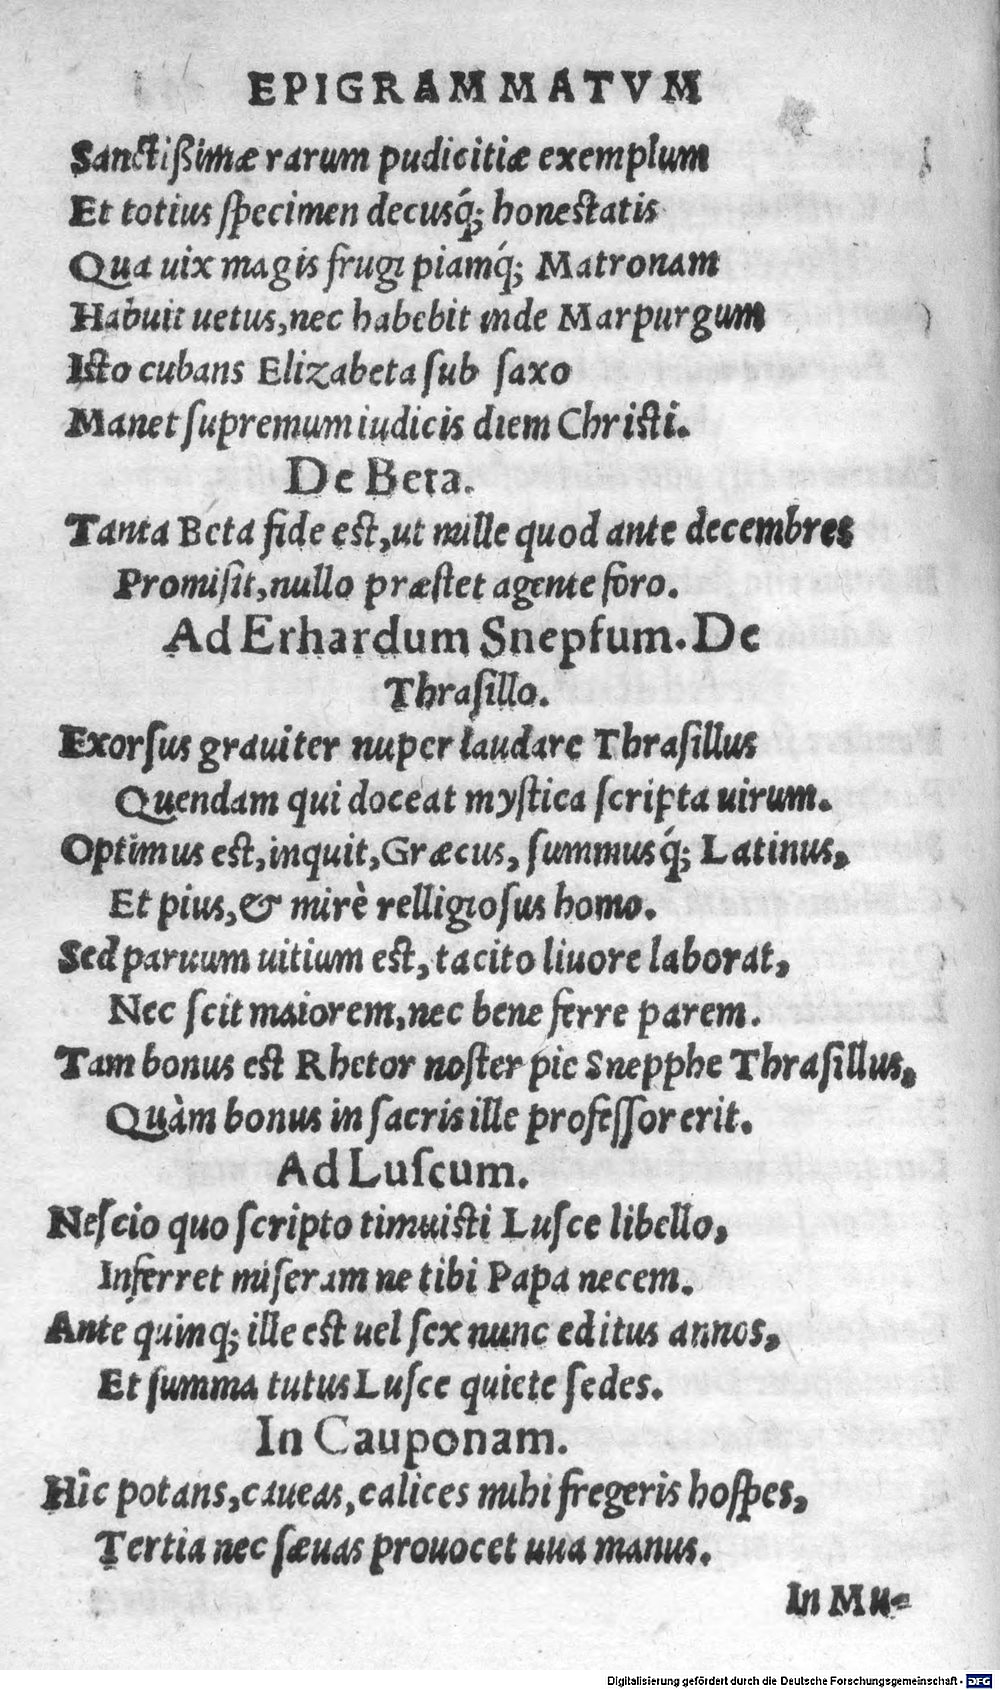 EPIGRAMMATVM
Sanctißimæ rarum pudicitiæ exemplum
Et totius ſpecimen decusq́; honeſtatis
Qua uix magis frugi piamq́; Matronam
Habuit uetus, nec habebit inde Marpurgum
Iſto cubans Elizabeta ſub ſaxo
Manet ſupremum iudicis diem Chriſti.
De Beta.
Tanta Beta fide eſt, ut mille quod ante decembres
Promiſit, nullo præſtet agente foro.
Ad Erhardum Snepfum. De
Thraſillo.
Exorſus grauiter nuper laudare Thraſillus
Quendam qui doceat myſtica ſcripta uirum.
Optimus eſt, inquit, Græcus, ſummusq́; Latinus,
Et pius, & mirè relligioſus homo.
Sed paruum uitium eſt, tacito liuore laborat,
Nec ſcit maiorem, nec bene ferre parem.
Tam bonus eſt Rhetor noſter pie Snepphe Thraſillus,
Quàm bonus in ſacris ille profeſſor erit.
Ad Luſcum.
Neſcio quo ſcripto timuiſti Luſce libello,
Inferret miſeram ne tibi Papa necem.
Ante quinq; ille eſt uel ſex nunc editus annos,
Et ſumma tutus Luſce quiete ſedes.
In Cauponam.
Hîc potans, caueas, calices mihi fregeris hoſpes,
Tertia nec ſæuas prouocet uua manus.
In Mu-
Digitalisierung gefördert durch die Deutsche Forschungsgemeinschaft - DFG